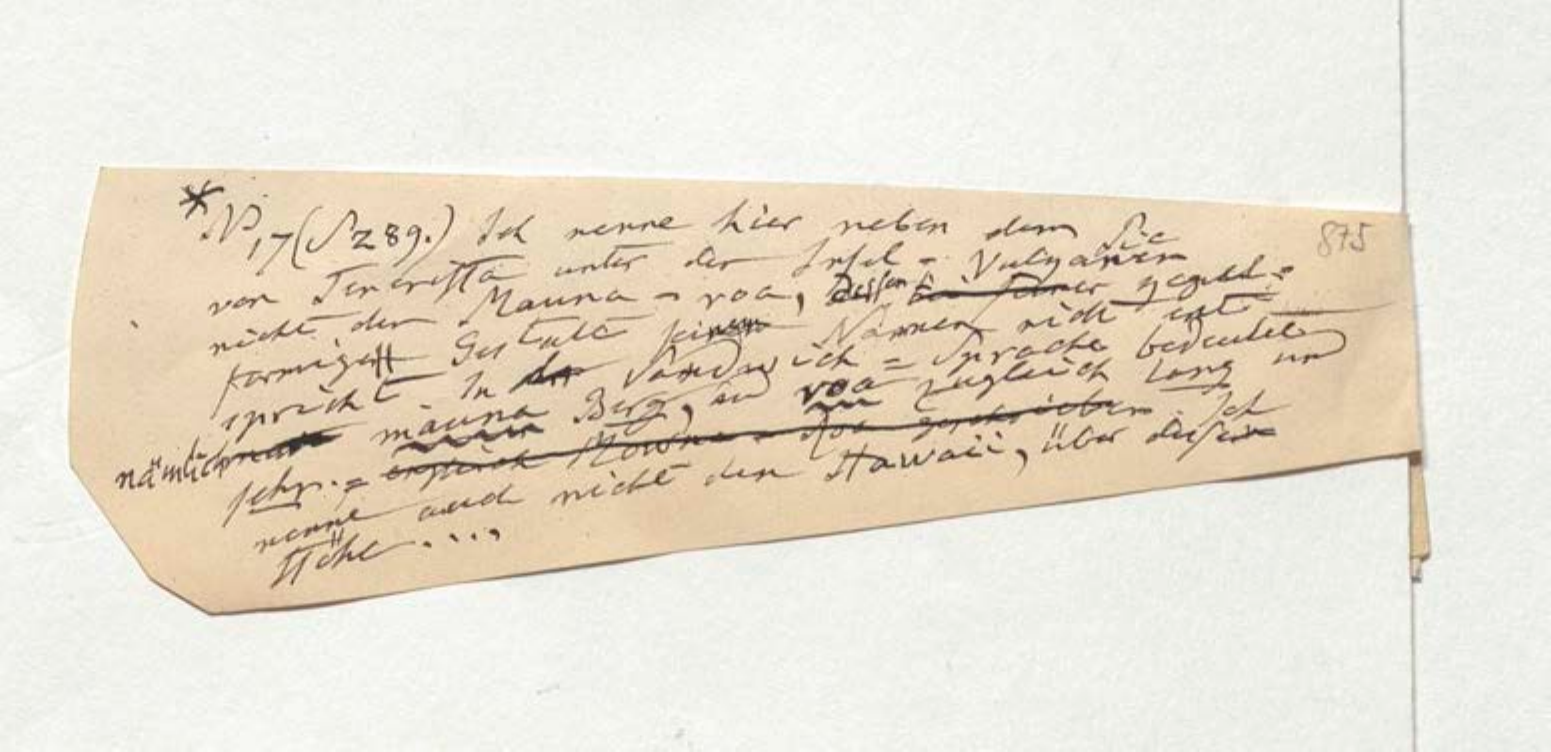 875
* N° 17 (S. 289.) Ich nenne hier neben dem Pic
von Teneriffa unter den Insel=Vulkanen
nicht den Mauna-roa, dessen
förmige Gestalt seinem Namen nicht ent=
spricht. In der Sandwich=Sprache bedeutet
nämlich mauna Berg, und roa zugleich lang und
sehr. = englisch Mowna-Roa geschrieben. Ich
nenne auch nicht den Hawaii, über dessen
Höhe ....